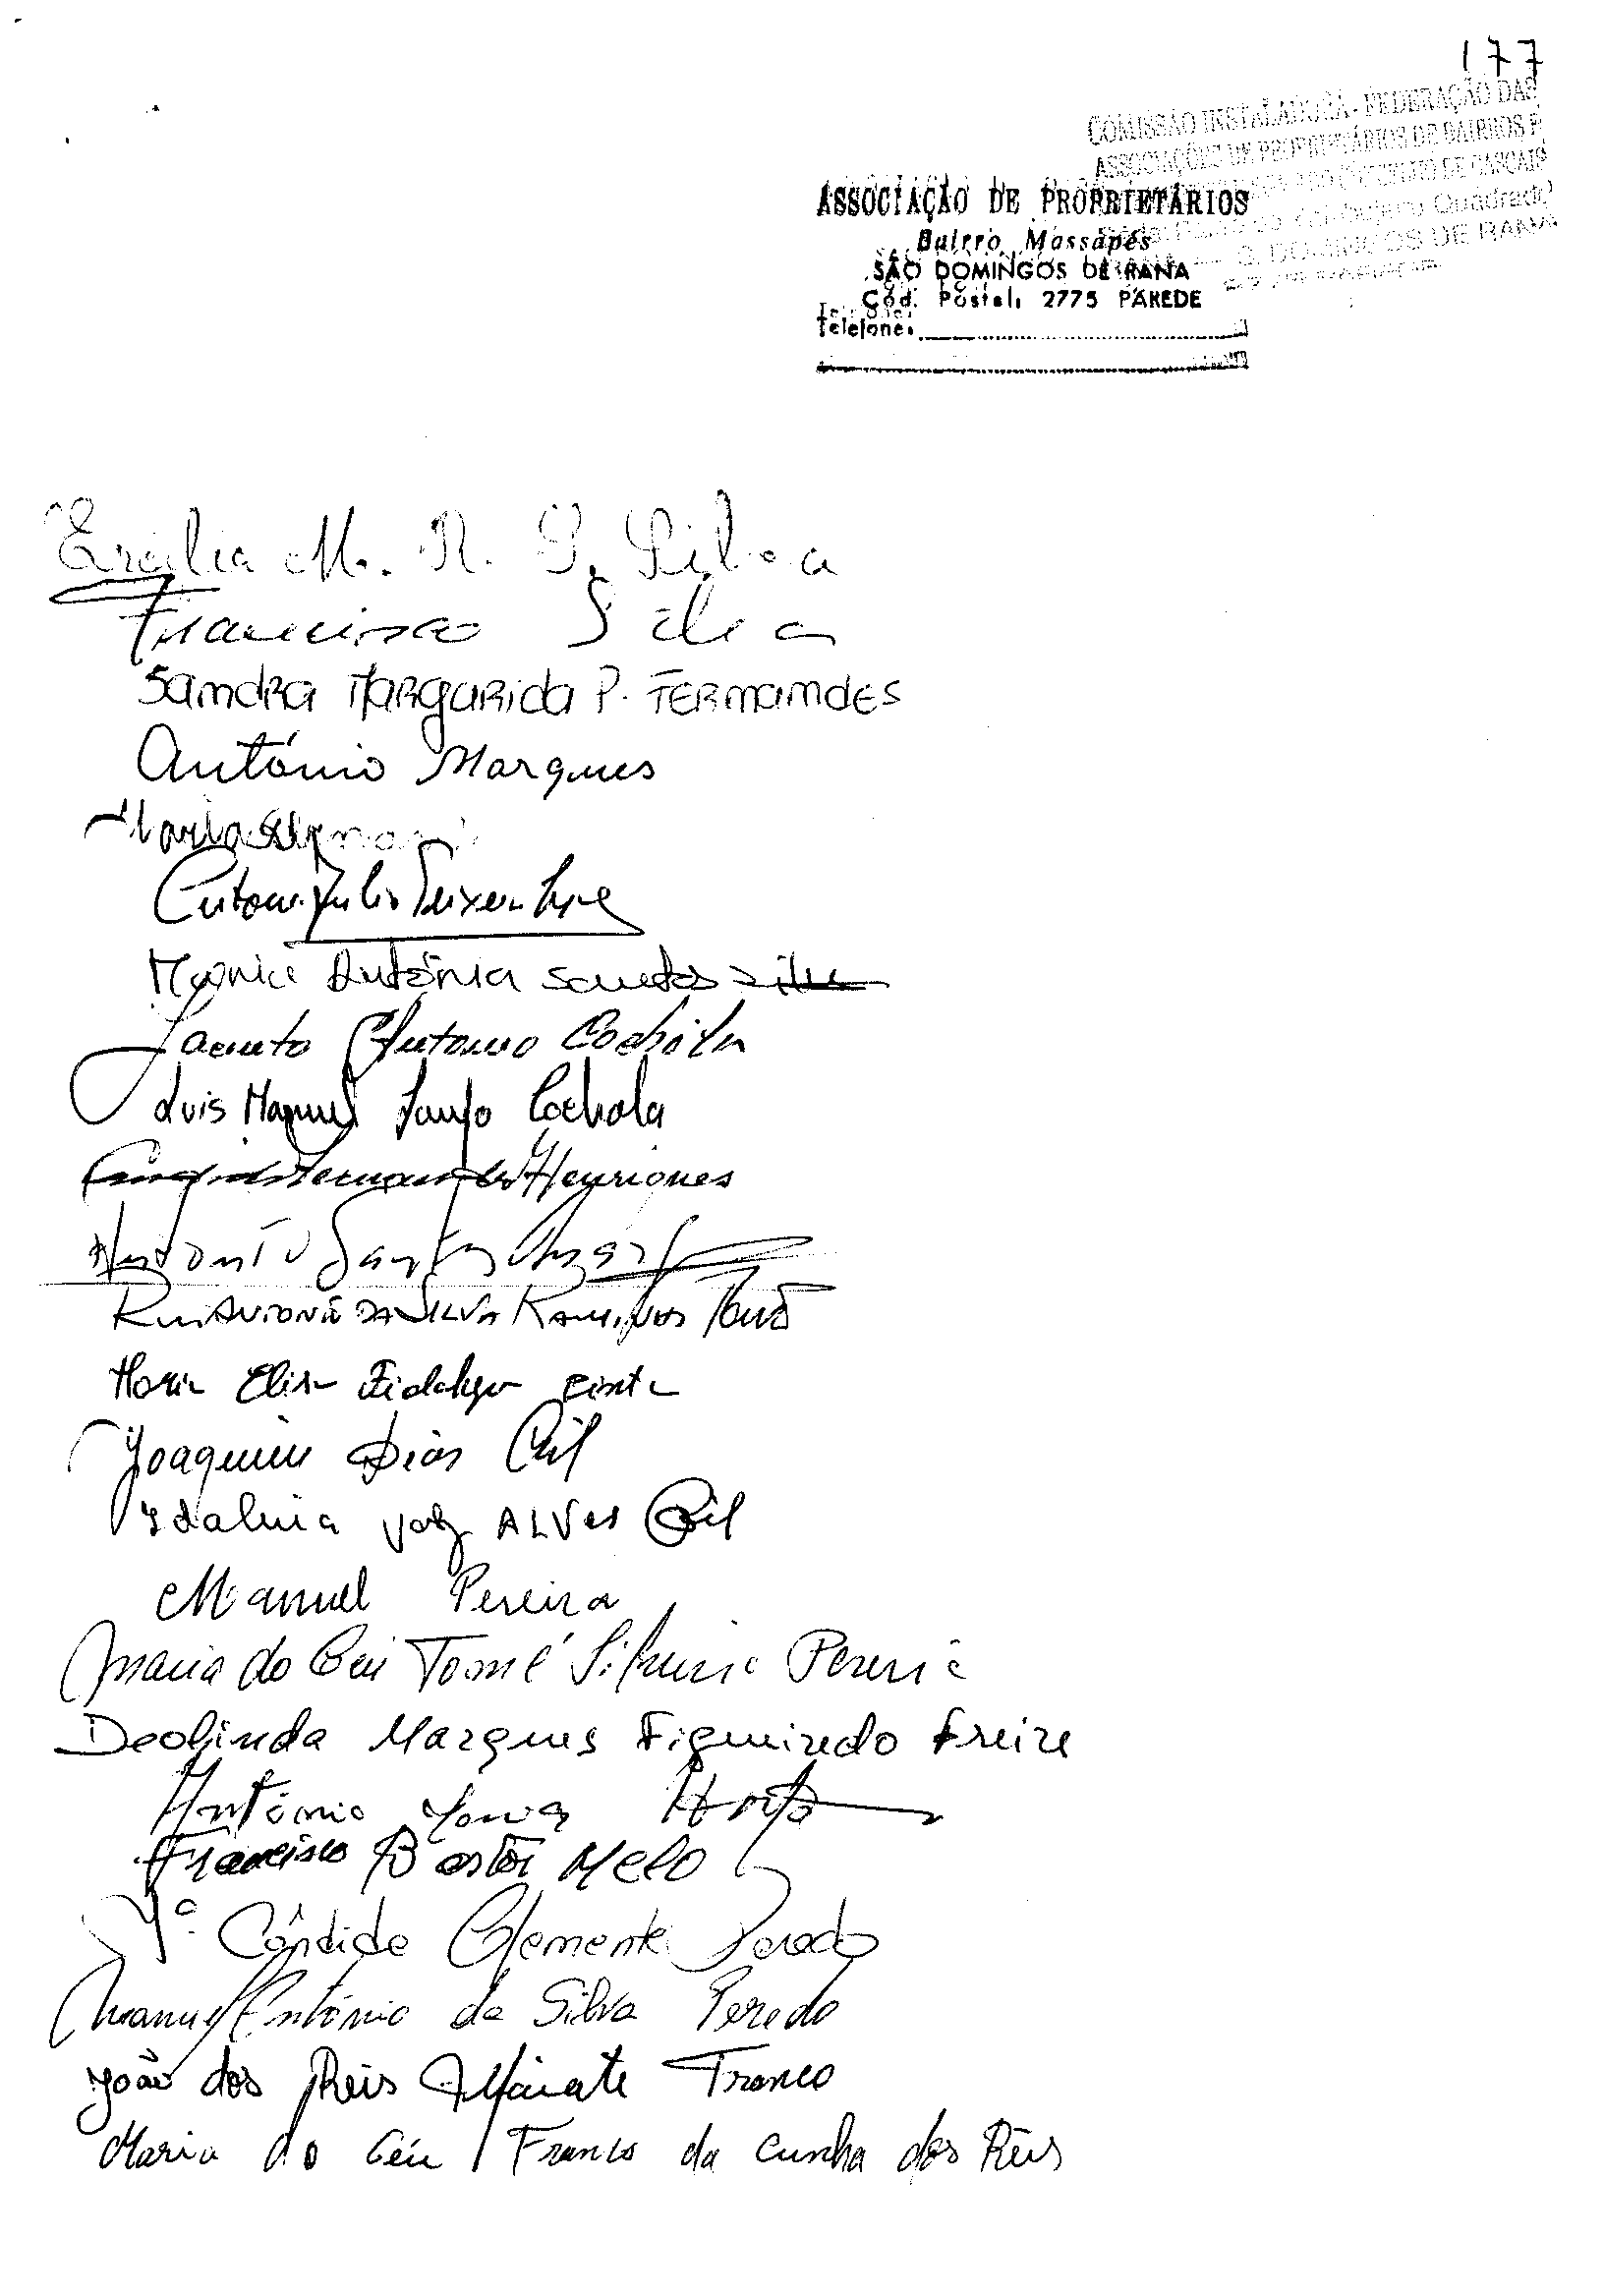 177
COMISSÃO INSTALADORA - FEDERAÇÃO DAS
ASSOCIAÇÕES DE PROPRIETÁRIOS DE BAIRROS E
DE CASCAIS
Quadrado
S. DOMINGOS DE RANA
ASSOCIAÇÃO DE PROPRIETÁRIOS
Bairro Massapés
SÃO DOMINGOS DE RANA
Cód. Postal: 2775 PAREDE
Telefone:
Ercília M. R. S. Silva
Francisco Silva
Sandra Margarida P. Fernandes
António Marques
Maria
Teixeira
Maria Antónia Santos Silva
Jacinto Antonio Cochola
Luis Manuel Cochola
Fernandes Henriques
António Santos
Rui António da Silva Raminhos
Maria Elisa Fidalgo
Joaquim Dias Gil
Idalina Vaz Alves Gil
Manuel Pereira
Maria do Céu Tomé Silveira Pereira
Deolinda Marques Figueiredo Freire
António Horta
Francisco Bastos Melo
Mª Cândida Clemente Peredo
Manuel António da Silva Peredo
João dos Reis Franco
Maria do Céu Franco da Cunha dos Reis